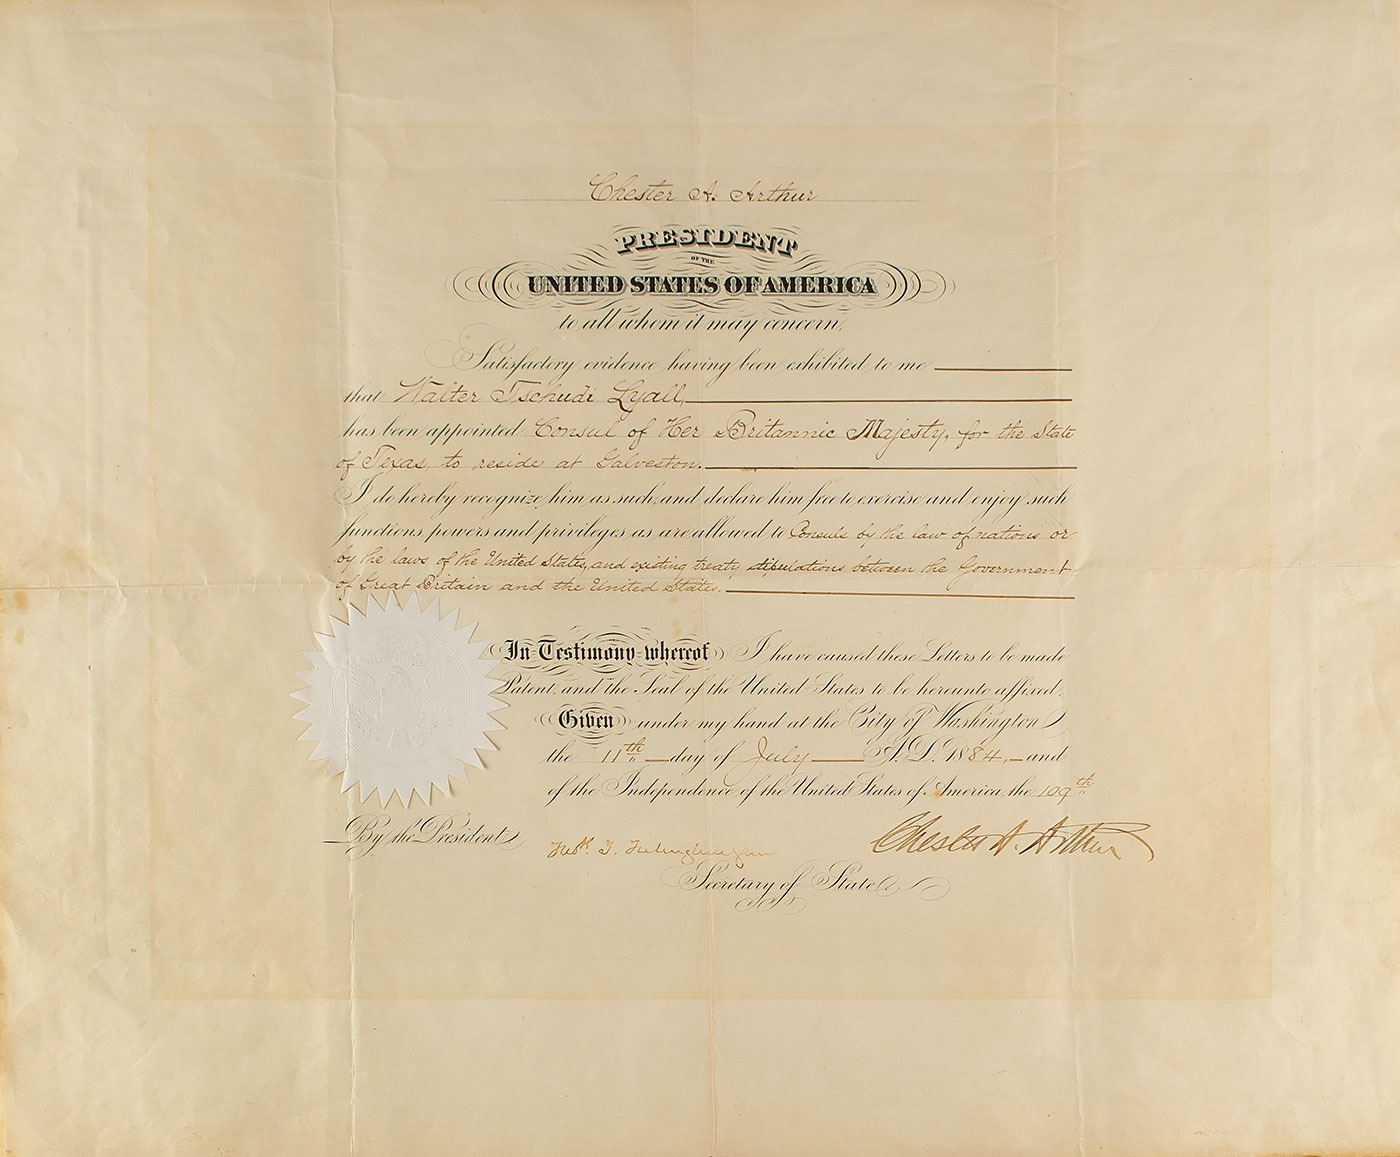 Chester A. Arthur
PRESIDENT
OF THE
UNITED STATES OF AMERICA
to all whom it may concern.
Satisfactory evidence having been exhibited to me
that Walter Tschudi Lyall,
has been appointed Consul of Her Britannic Majesty, for the State
of Texas, to reside at Galveston.
I do hereby recognize him as such, and declare him free to exercise and enjoy such
functions, powers and privileges as are allowed to Consuls by the law of nations or
by the laws of the United States, and existing treaty stipulations between the Government
of Great Britain and the United States.
In Testimony whereof I have caused these Letters to be made
Patent, and the Seal of the United States to be hereunto affixed.
Given under my hand at the City of Washington
the 11th day of July A.D. 1884, and
of the Independence of the United States of America, the 109th
By the President
Chester A. Arthur
Fredk. T. Frelinghuysen
Secretary of State